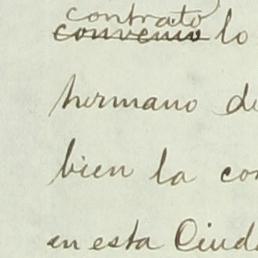 contrato
convenio lo
hermano de
bien la con
en esta Ciuda